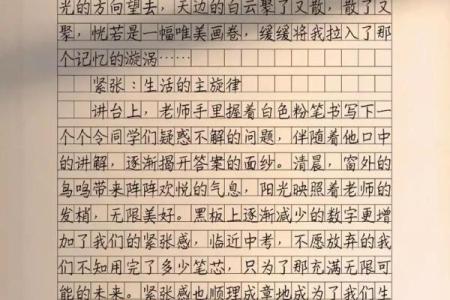 光的方向望去，天边的白云聚了又散，散了又
聚，恍若是一幅唯美画卷，缓缓将我拉入了那
个记忆的漩涡……
紧张：生活的主旋律
讲台上，老师手里握着白色粉笔书写下一
个个令同学们疑惑不解的问题，伴随着他口中
的讲解，逐渐揭开答案的面纱。清晨，窗外的
鸟鸣带来阵阵欢悦的气息，阳光映照着老师的
发梢，无限美好。黑板上逐渐减少的数字更增
加了我们的紧张感，临近中考，不愿放弃的我
们不知用完了多少笔芯，只为了那充满无限可
能的未来。紧张感也顺理成章地成为了我们生